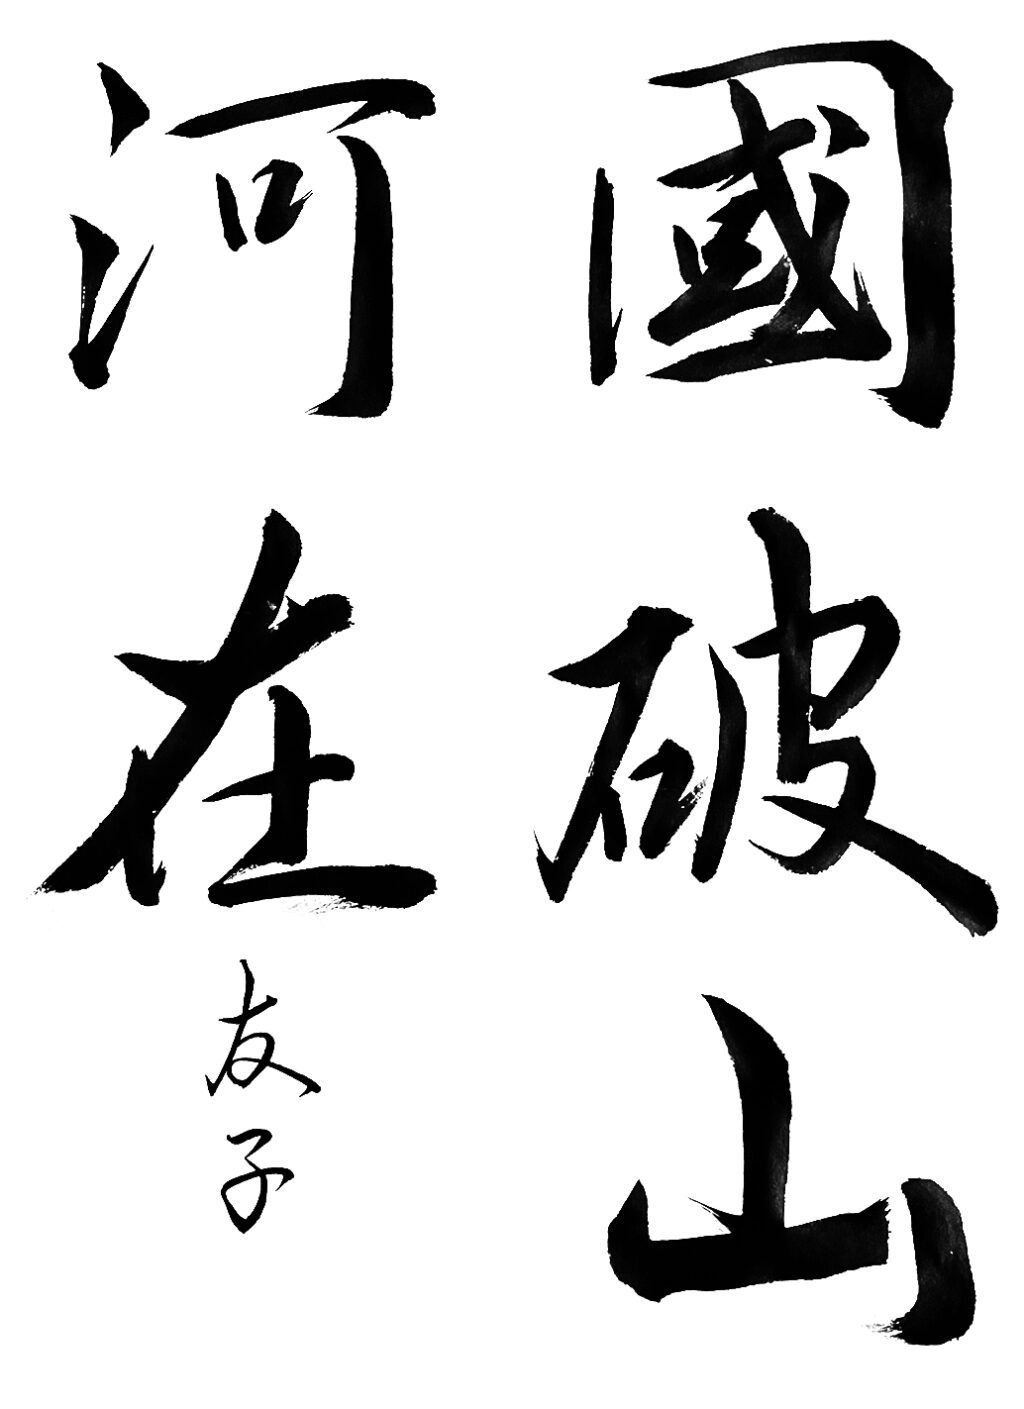 國破山
河在
友子